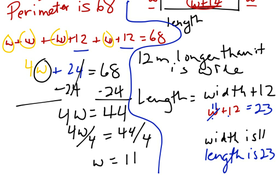 Perimeter is 68
w + w + w + 12 + w + 12 = 68
4w + 24 = 68
-24 -24
4w = 44
4w/4 = 44/4
w = 11
w+12
length
12 m longer than it is wide
Length = width + 12
11
w + 12 = 23
width is 11
length is 23